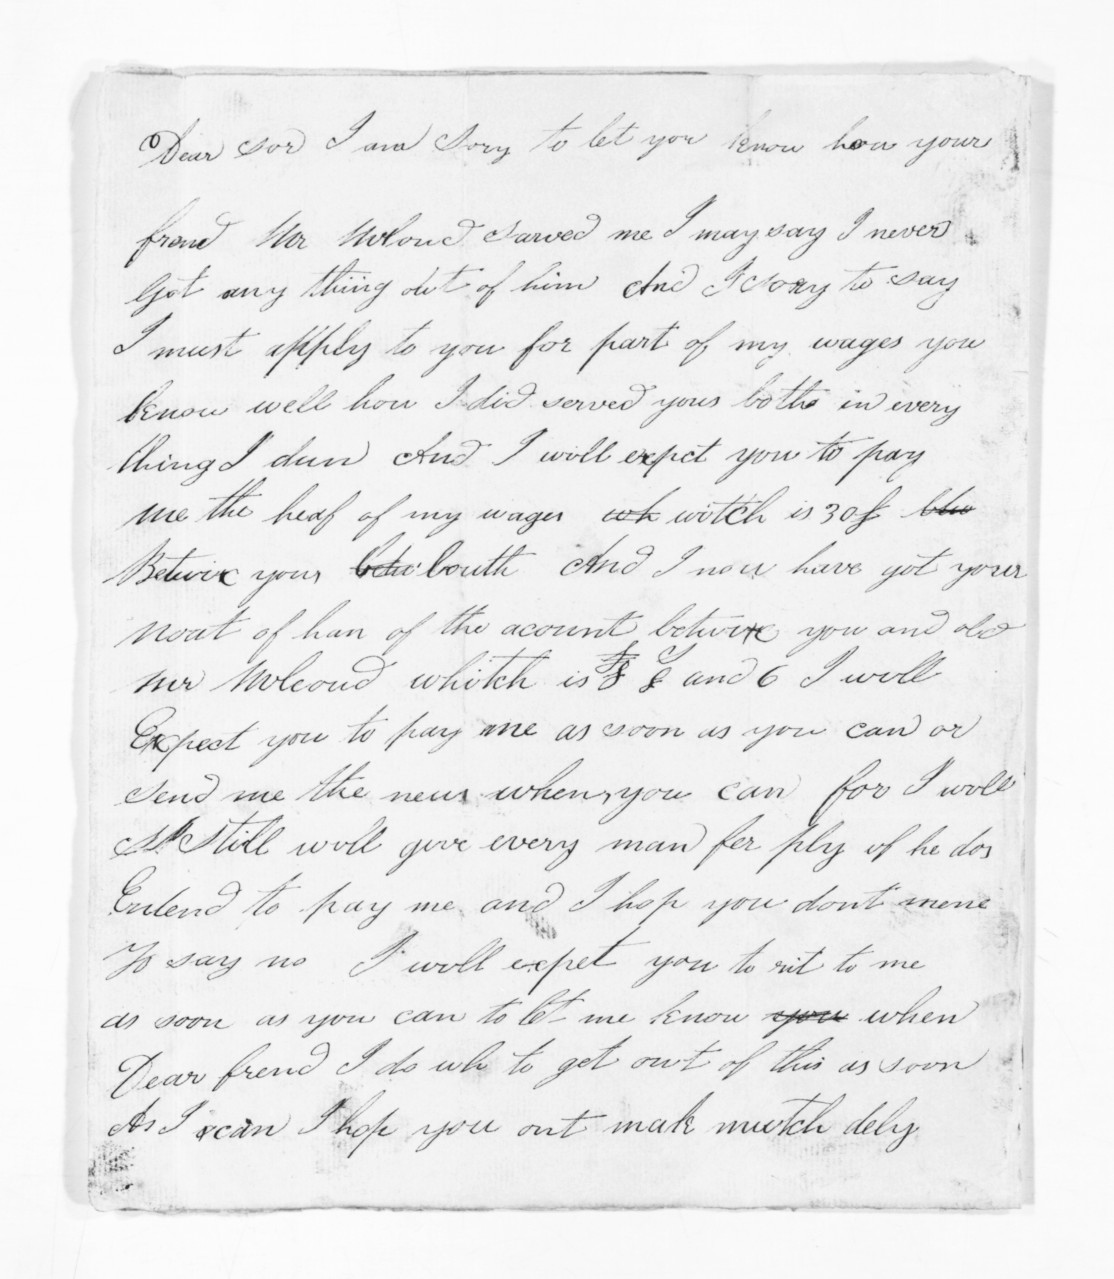 Dear sor I am Sory to let you know how your
frend Mr Mcloud sarved me I may say I never
Got any thing owt of him And I sory to say
I must apply to you for part of my wages you
know well how I did served yous both in every
thing I dun And I woll expct you to pay
me the heaf of my wages wh witch is 30£
Betwix yous betw bouth And I now have got your
noat of han of the acount betwixe you and old
mr Mcloud whitch is 8 and 6 I woll
Expect you to pay me as soon as you can or
send me the neus when you can for I woll
Still woll give every man fer ply if he dos
Entend to pay me and I hop you dont mene
To say no I woll expet you to rit to me
as soon as you can to let me know you when
Dear frend I do wh to get owt of this as soon
As I can I hop you ont mak mutch dely